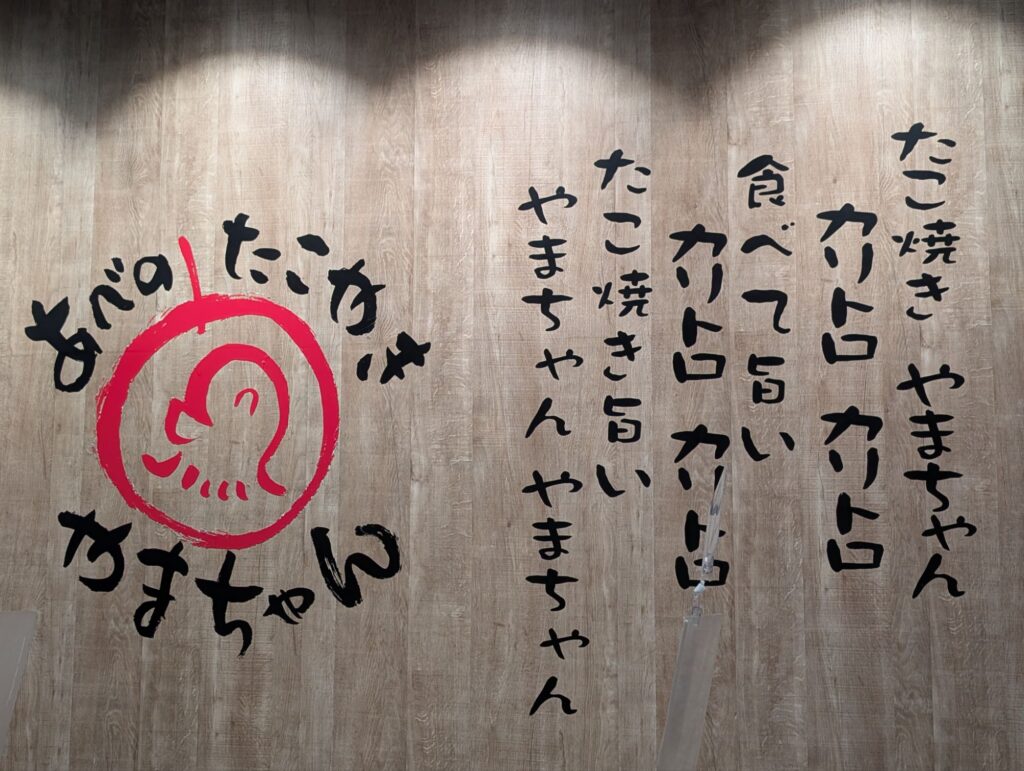 たこ焼き やまちゃん
カリトロ カリトロ
食べて旨い
カリトロ カリトロ
たこ焼き旨い
やまちゃん やまちゃん
あべの たこやき
やまちゃん